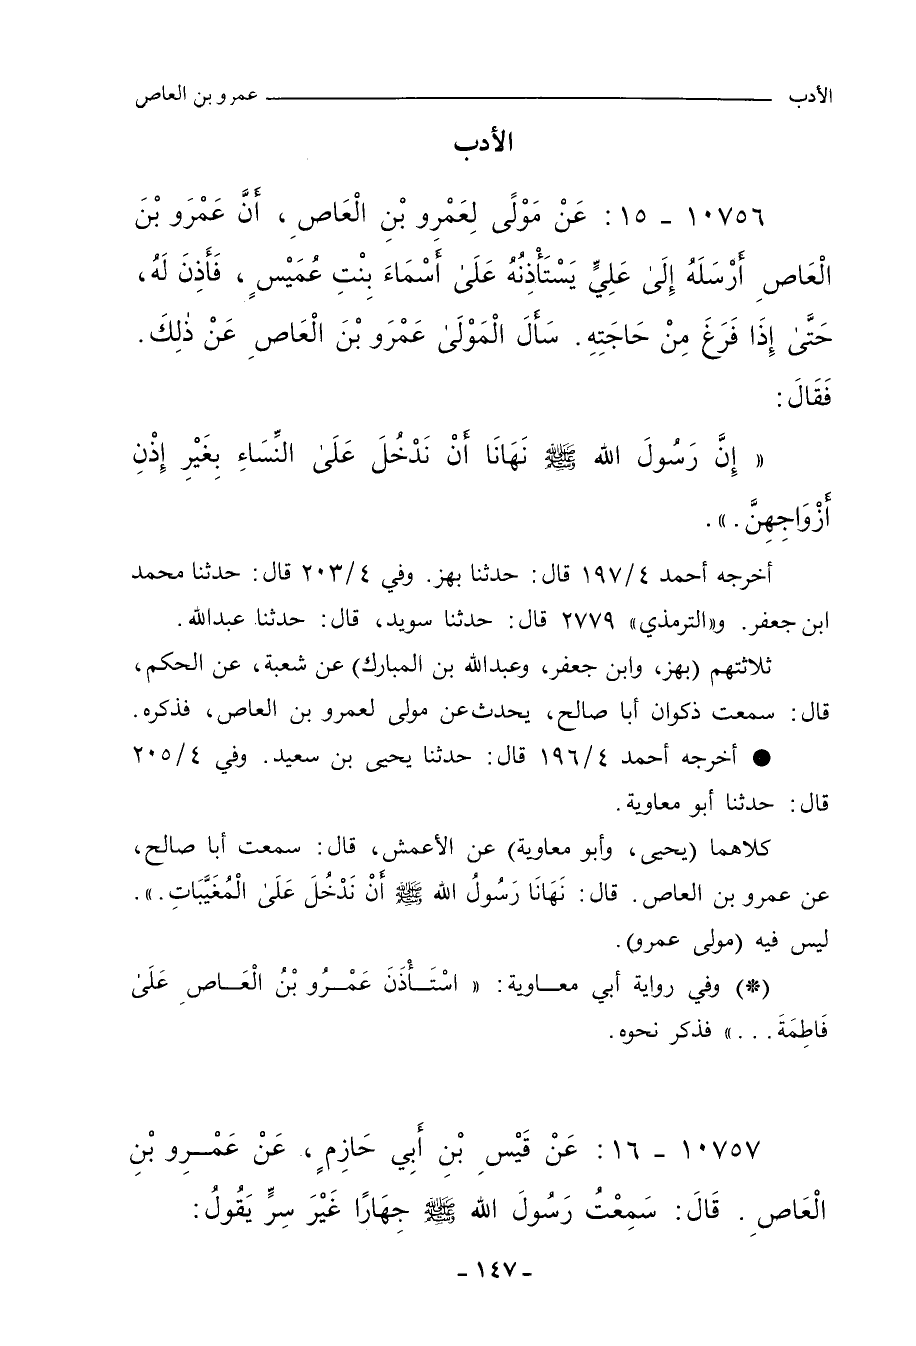 الأدب ـــــــــــــــــــــــــــــــــــــــــــــــــ عمرو بن العاص
الأدب
١٠٧٥٦ - ١٥ : عَنْ مَوْلًى لِعَمْرِو بْنِ الْعَاصِ ، أَنَّ عَمْرَو بْنَ
الْعَاصِ أَرْسَلَهُ إِلَىٰ عَلِيٍّ يَسْتَأْذِنُهُ عَلَىٰ أَسْمَاءَ بِنْتِ عُمَيْسٍ ، فَأَذِنَ لَهُ ،
حَتَّىٰ إِذَا فَرَغَ مِنْ حَاجَتِهِ . سَأَلَ الْمَوْلَىٰ عَمْرَو بْنَ الْعَاصِ عَنْ ذٰلِكَ .
فَقَالَ :
« إِنَّ رَسُولَ الله ﷺ نَهَانَا أَنْ نَدْخُلَ عَلَىٰ النِّسَاءِ بِغَيْرِ إِذْنِ
أَزْوَاجِهِنَّ . » .
أخرجه أحمد ١٩٧/٤ قال : حدثنا بهز . وفي ٢٠٣/٤ قال : حدثنا محمد
ابن جعفر . و«الترمذي» ٢٧٧٩ قال : حدثنا سويد ، قال : حدثنا عبدالله .
ثلاثتهم (بهز ، وابن جعفر ، وعبدالله بن المبارك) عن شعبة ، عن الحكم ،
قال : سمعت ذكوان أبا صالح ، يحدث عن مولى لعمرو بن العاص ، فذكره .
● أخرجه أحمد ١٩٦/٤ قال : حدثنا يحيى بن سعيد . وفي ٢٠٥/٤
قال : حدثنا أبو معاوية .
كلاهما (يحيى ، وأبو معاوية) عن الأعمش ، قال : سمعت أبا صالح ،
عن عمرو بن العاص . قال : نَهَانَا رَسُولُ الله ﷺ أَنْ نَدْخُلَ عَلَىٰ الْمُغَيَّبَاتِ . » .
ليس فيه (مولى عمرو) .
(*) وفي رواية أبي معـاوية : « اسْتَـأْذَنَ عَمْـرُو بْنُ الْعَـاصِ عَلَىٰ
فَاطِمَةَ . . . » فذكر نحوه .
١٠٧٥٧ - ١٦ : عَنْ قَيْسِ بْنِ أَبِي حَازِمٍ ، عَنْ عَمْـرِو بْنِ
الْعَاصِ . قَالَ : سَمِعْتُ رَسُولَ الله ﷺ جِهَارًا غَيْرَ سِرٍّ يَقُولُ :
- ١٤٧ -